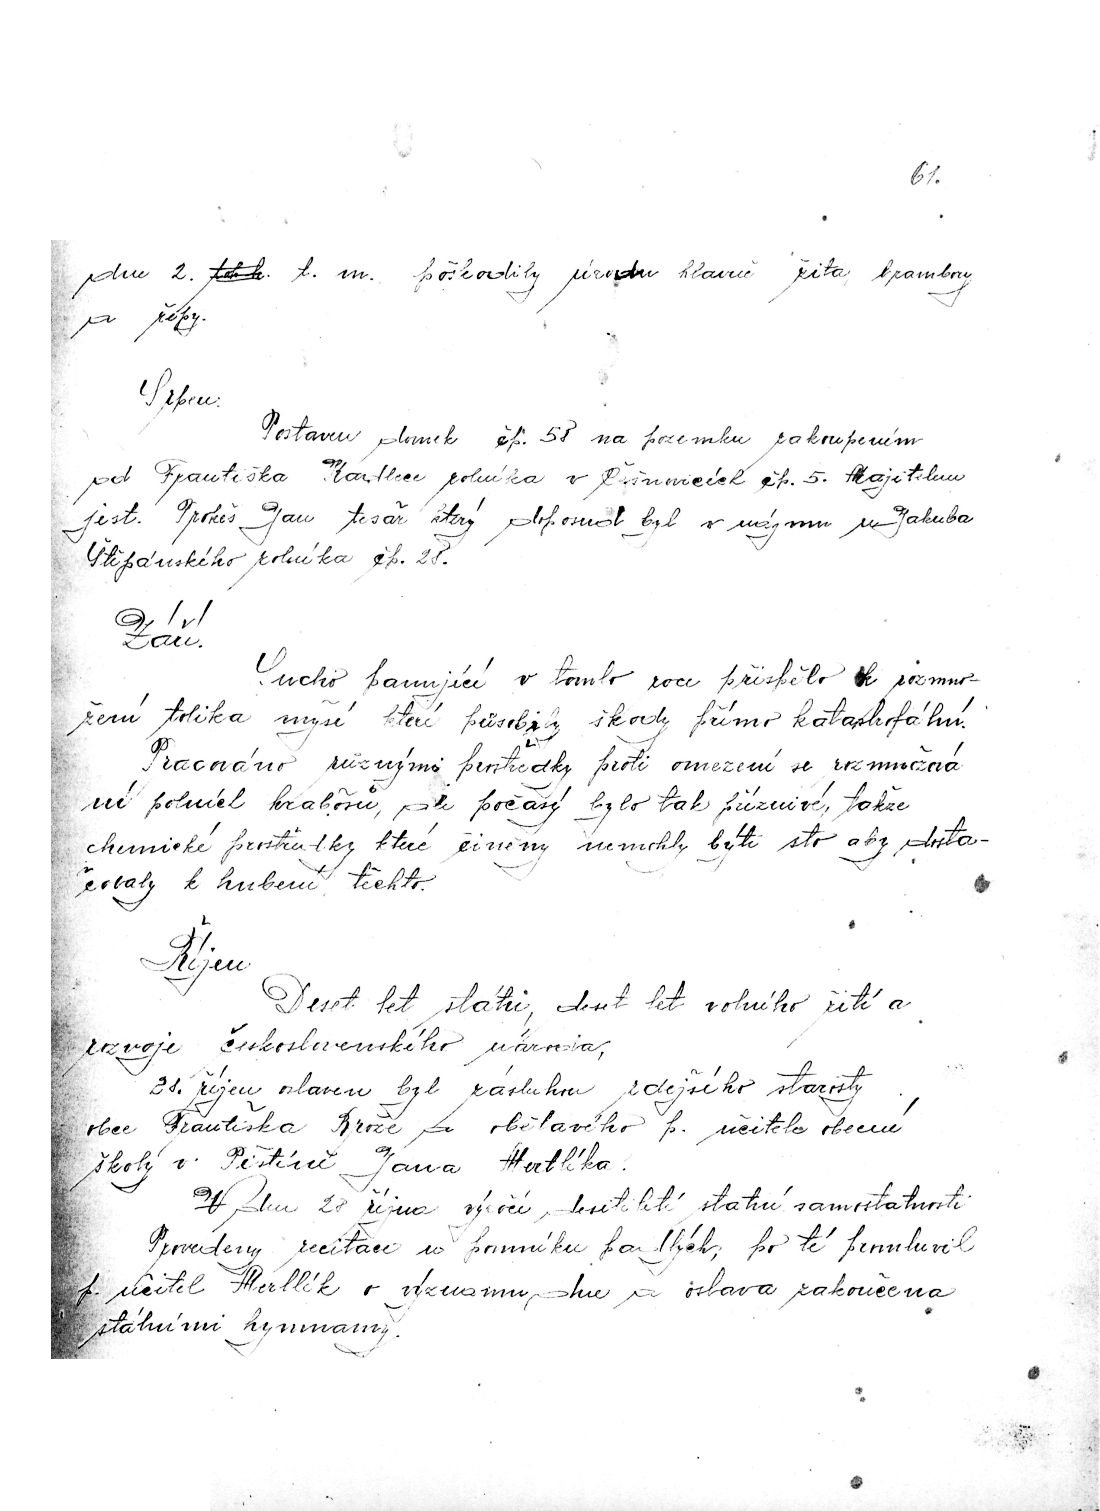 61.
dne 2. t. m. poškodily úrodu hlavně žita, brambory
a řepy.
Srpen.
Postaven domek čp. 58 na pozemku zakoupeném
od Františka Kadlece rolníka v Češnovicích čp. 5. Majitelem
jest. Prokeš Jan tesař který doposud byl v nájmu u Jakuba
Štěpánského rolníka čp. 28.
Září.
Sucho panující v tomto roce přispělo k rozmno-
žení tolika myší které působily škody přímo katastrofální.
Pracováno různými prostředky proti omezení se rozmnožová
ní polních hrabošů, ale počásý bylo tak příznivé, takže
chemické prostředky které činěny nemohly býti sto aby dosta-
čovaly k hubení těchto.
Říjen
Deset let státu, deset let volného žití a
rozvoje československého národa,
28. říjen oslaven byl zásluhou zdejšího starosty
obce Františka Brože a obětavého p. učitele obecní
školy v Pištíně Jana Hertlíka.
V den 28 října výročí desítiletí státní samostatnosti
Provedeny recitace u pomníku padlých, po té promluvil
p. učitel Hertlík o významu dne a oslava zakončena
státními hymnamy.